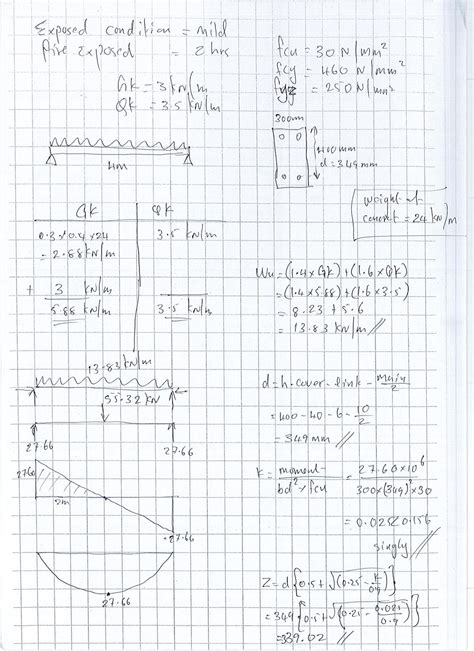 Exposed condition = mild
Fire exposed = 2 hrs
GK = 3 kN/m
QK = 3.5 kN/m
fcu = 30 N/mm²
fcy = 460 N/mm²
fyz = 250 N/mm²
4m
300mm
400mm
d = 349mm
weight of
concret = 24 kN/m
GK QK
0.3 x 0.4 x 24 3.5 kN/m
= 2.88 kN/m
+ 3 kN/m
5.88 kN/m 3.5 kN/m
Wu = (1.4 x GK) + (1.6 x QK)
= (1.4 x 5.88) + (1.6 x 3.5)
= 8.23 + 5.6
= 13.83 kN/m //
13.83 kN/m
55.32 kN
27.66 27.66
27.66
2m
-27.66
27.66
d = h - cover - link - main/2
= 400 - 40 - 6 - 10/2
= 349 mm //
K = moment / bd² x fcu = 27.60 x 10⁶ / 300 x (349)² x 30
= 0.025 < 0.156
singly //
Z = d {0.5 + √(0.25 - K/0.9)}
= 349 {0.5 + √(0.25 - 0.025/0.9)}
= 339.02 //